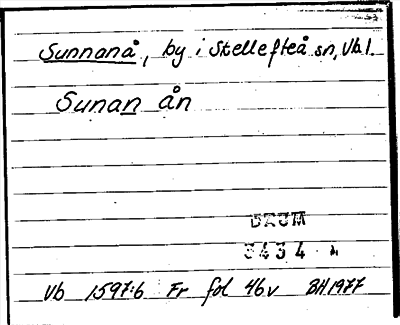 Sunnanå, by i Skellefteå sn, Vbl.
Sunan ån
DAUM
3434
Vb 1597:6 Fr fol 46v BH 1977